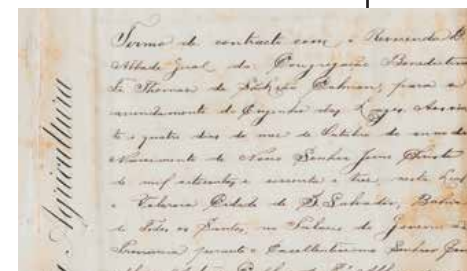 Agricultura
Termo de contracto com o Reverendo D.
Abbade Geral da Congregação Benedictina
Fr. Thomaz de Calmon, para o
arrendamento do Engenho das Lages. Aos vin
te e quatro dias do mez de Outubro do anno do
Nascimento de Nosso Senhor Jesus Christo
de mil oitocentos e cincoenta e tres, nesta Leal
e Valorosa Cidade de S. Salvador, Bahia
de Todos os Santos, no Palacio do Governo da
Provincia perante o Excellentissimo Senhor